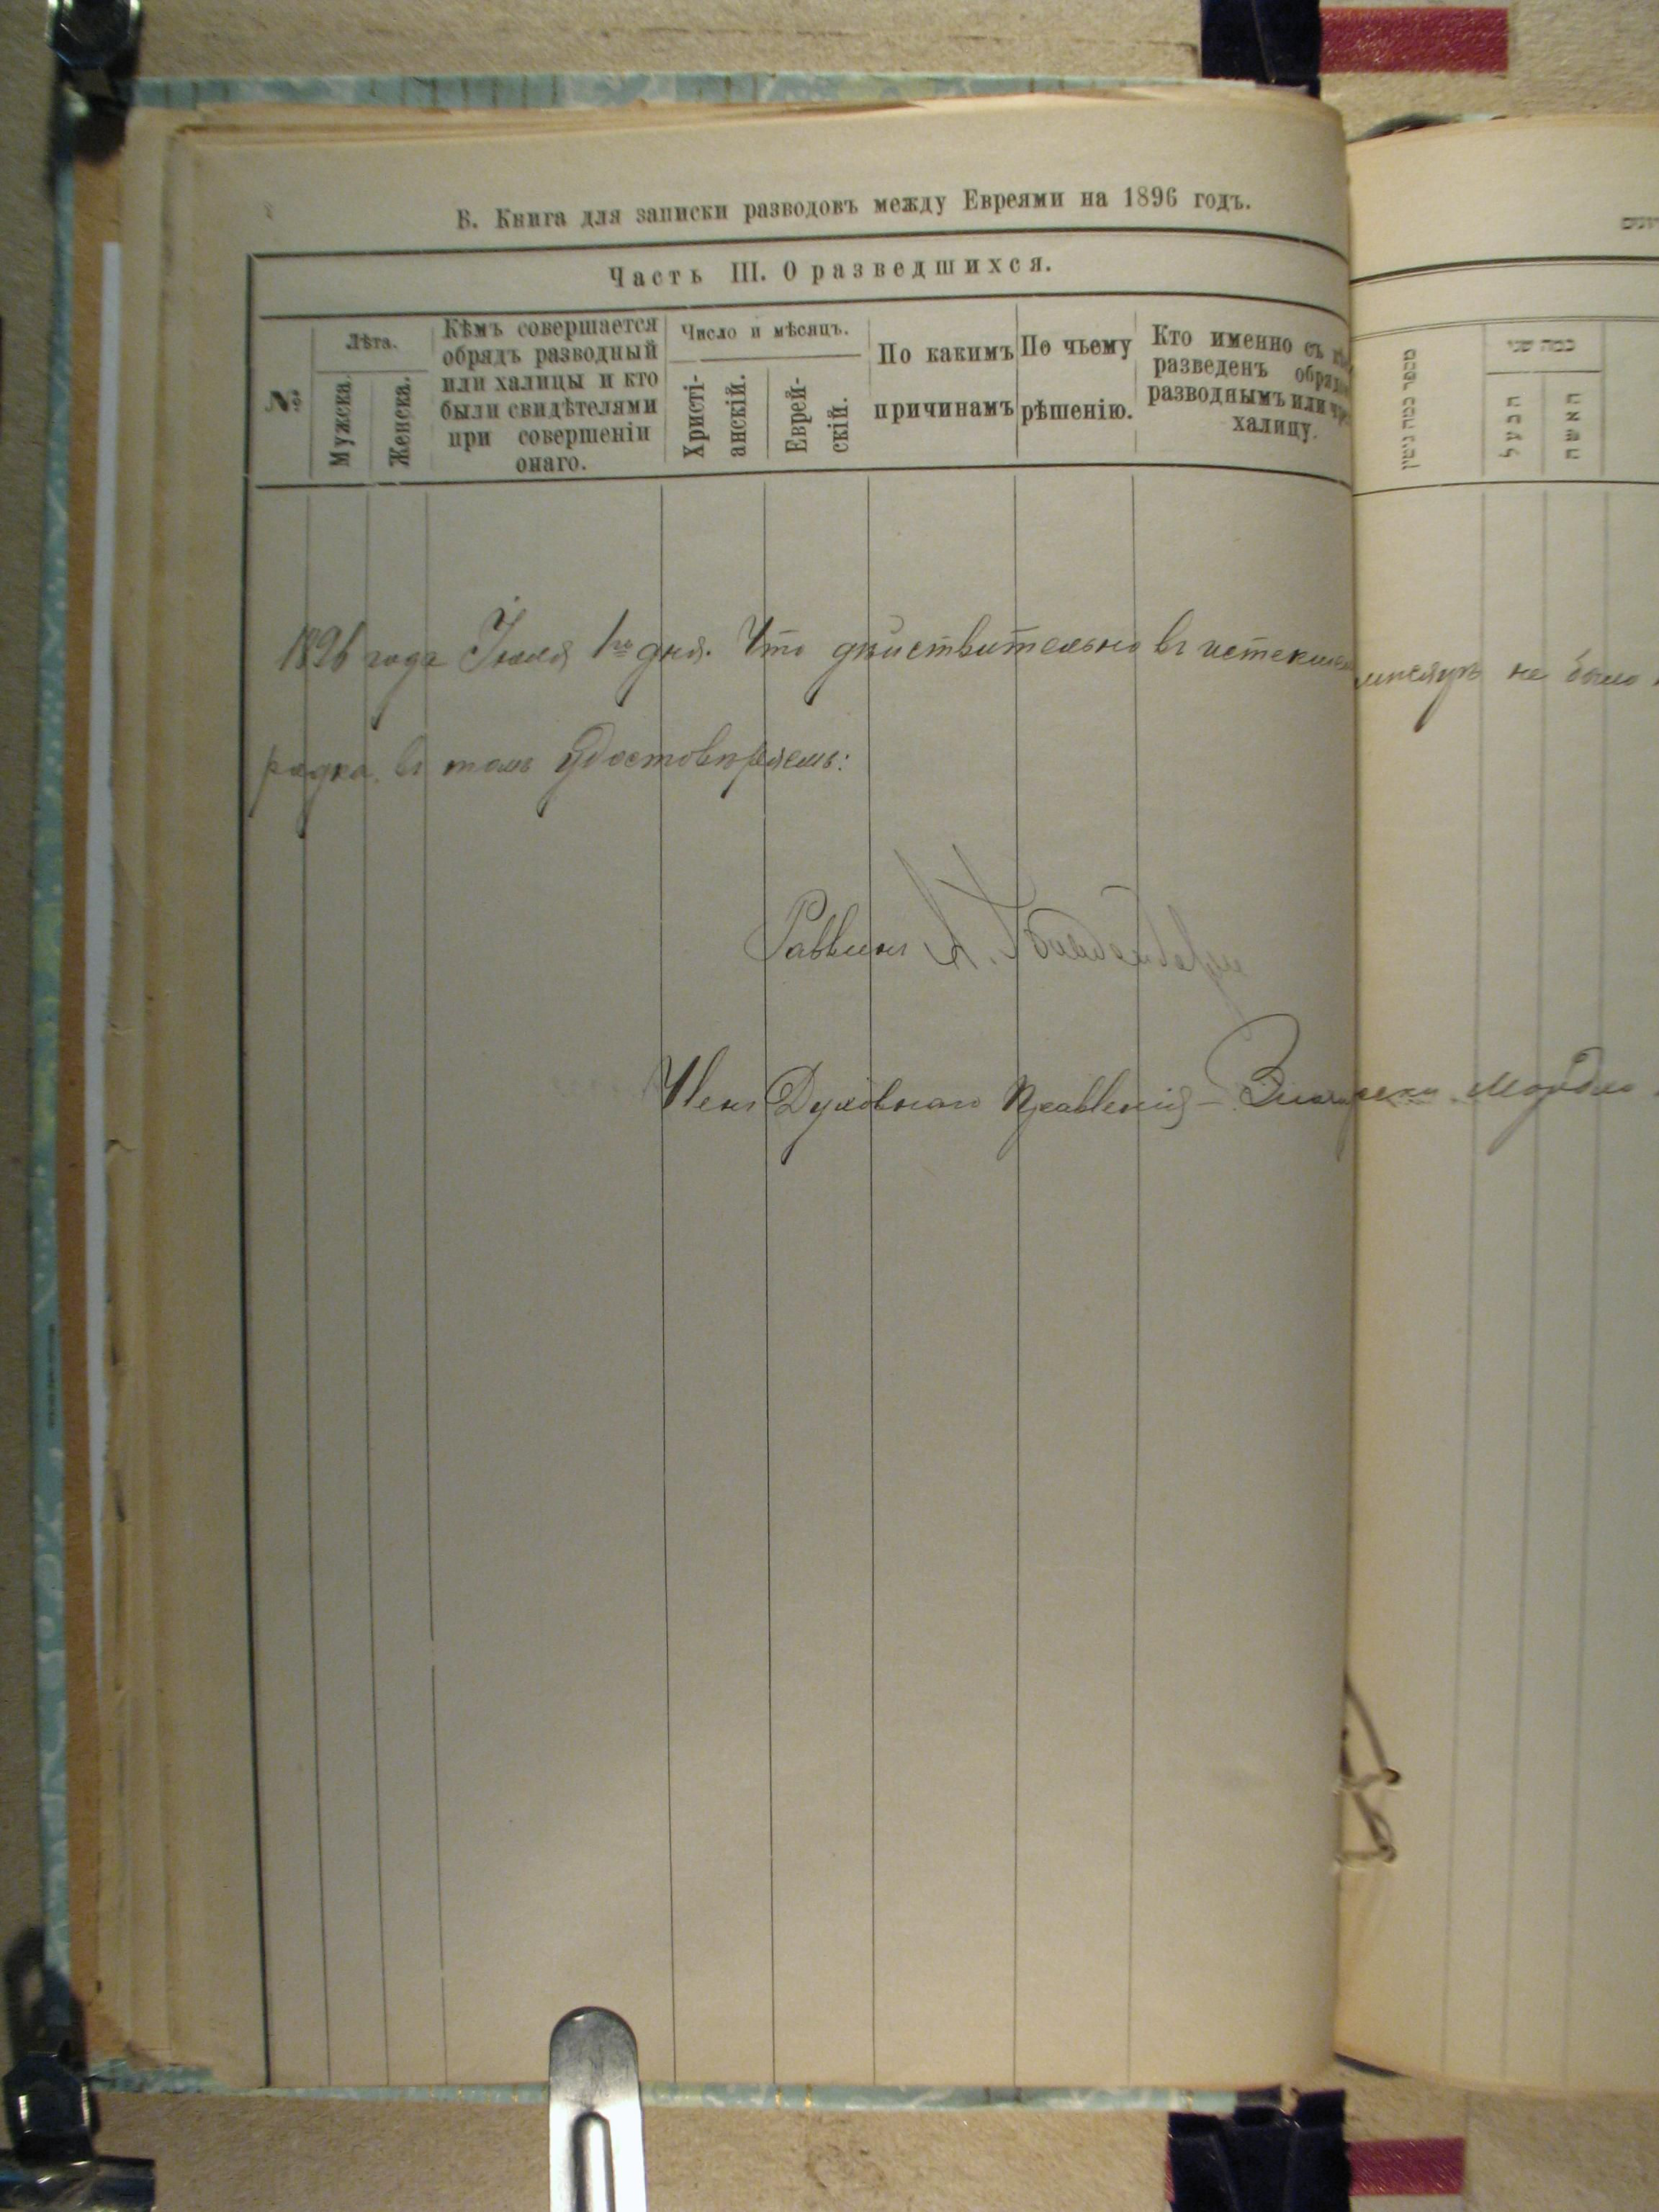 В. Книга для записки разводовъ между Евреями на 1896 годъ.
Часть III. О разведшихся.
№
Лѣта.
Мужска.
Женска.
Кѣмъ совершается
обрядъ разводный
или халицы и кто
были свидѣтелями
при совершеніи
онаго.
Число и мѣсяцъ.
Христі-
анскій.
Еврей-
скій.
По какимъ
причинамъ
По чьему
рѣшенію.
Кто именно съ
разведенъ
разводнымъ или
халицу.
1896 года Іюля 1го дня. Что дѣйствительно въ мѣсяцѣ не было
въ томъ Удостовѣряемъ:
Раввинъ
Членъ Духовнаго Правленія –
כמה שני
הבעל
האשה